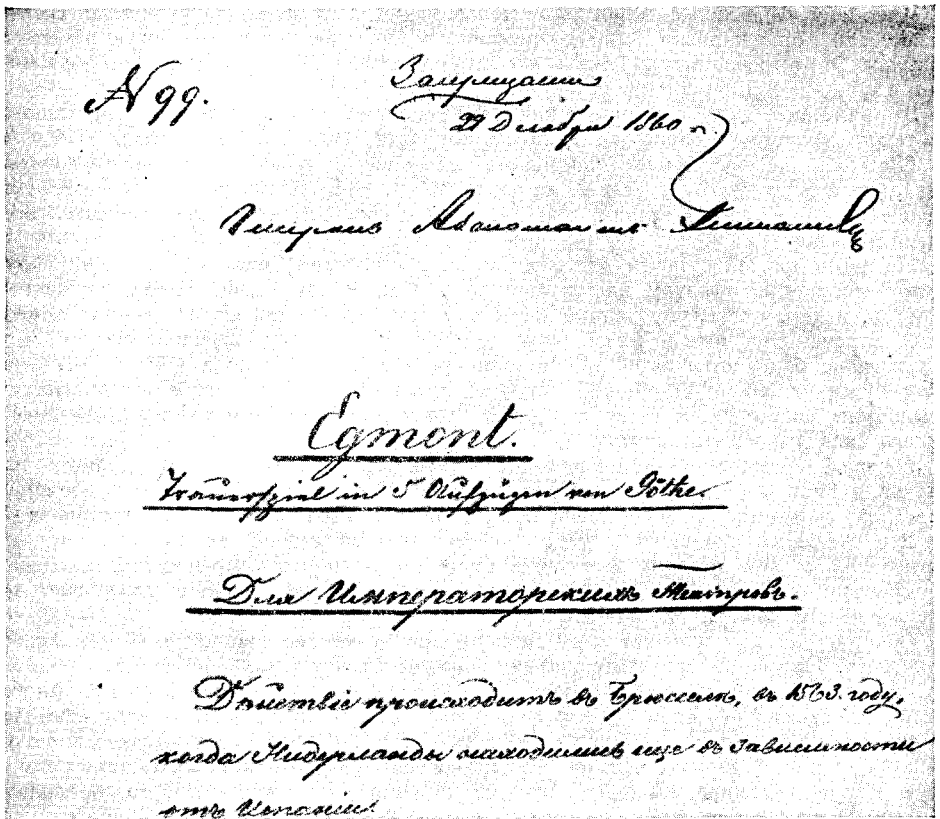 N 99.
Запрещается
22 Декабря 1860 г.
Генералъ Адъютантъ Тимашевъ
Egmont.
Trauerspiel in 5 Aufzügen von Göthe.
Для Императорскихъ Театровъ.
Дѣйствіе происходитъ въ Брюсселѣ, въ 1563. году,
когда Нидерланды находились еще въ зависимости
отъ Испаніи.